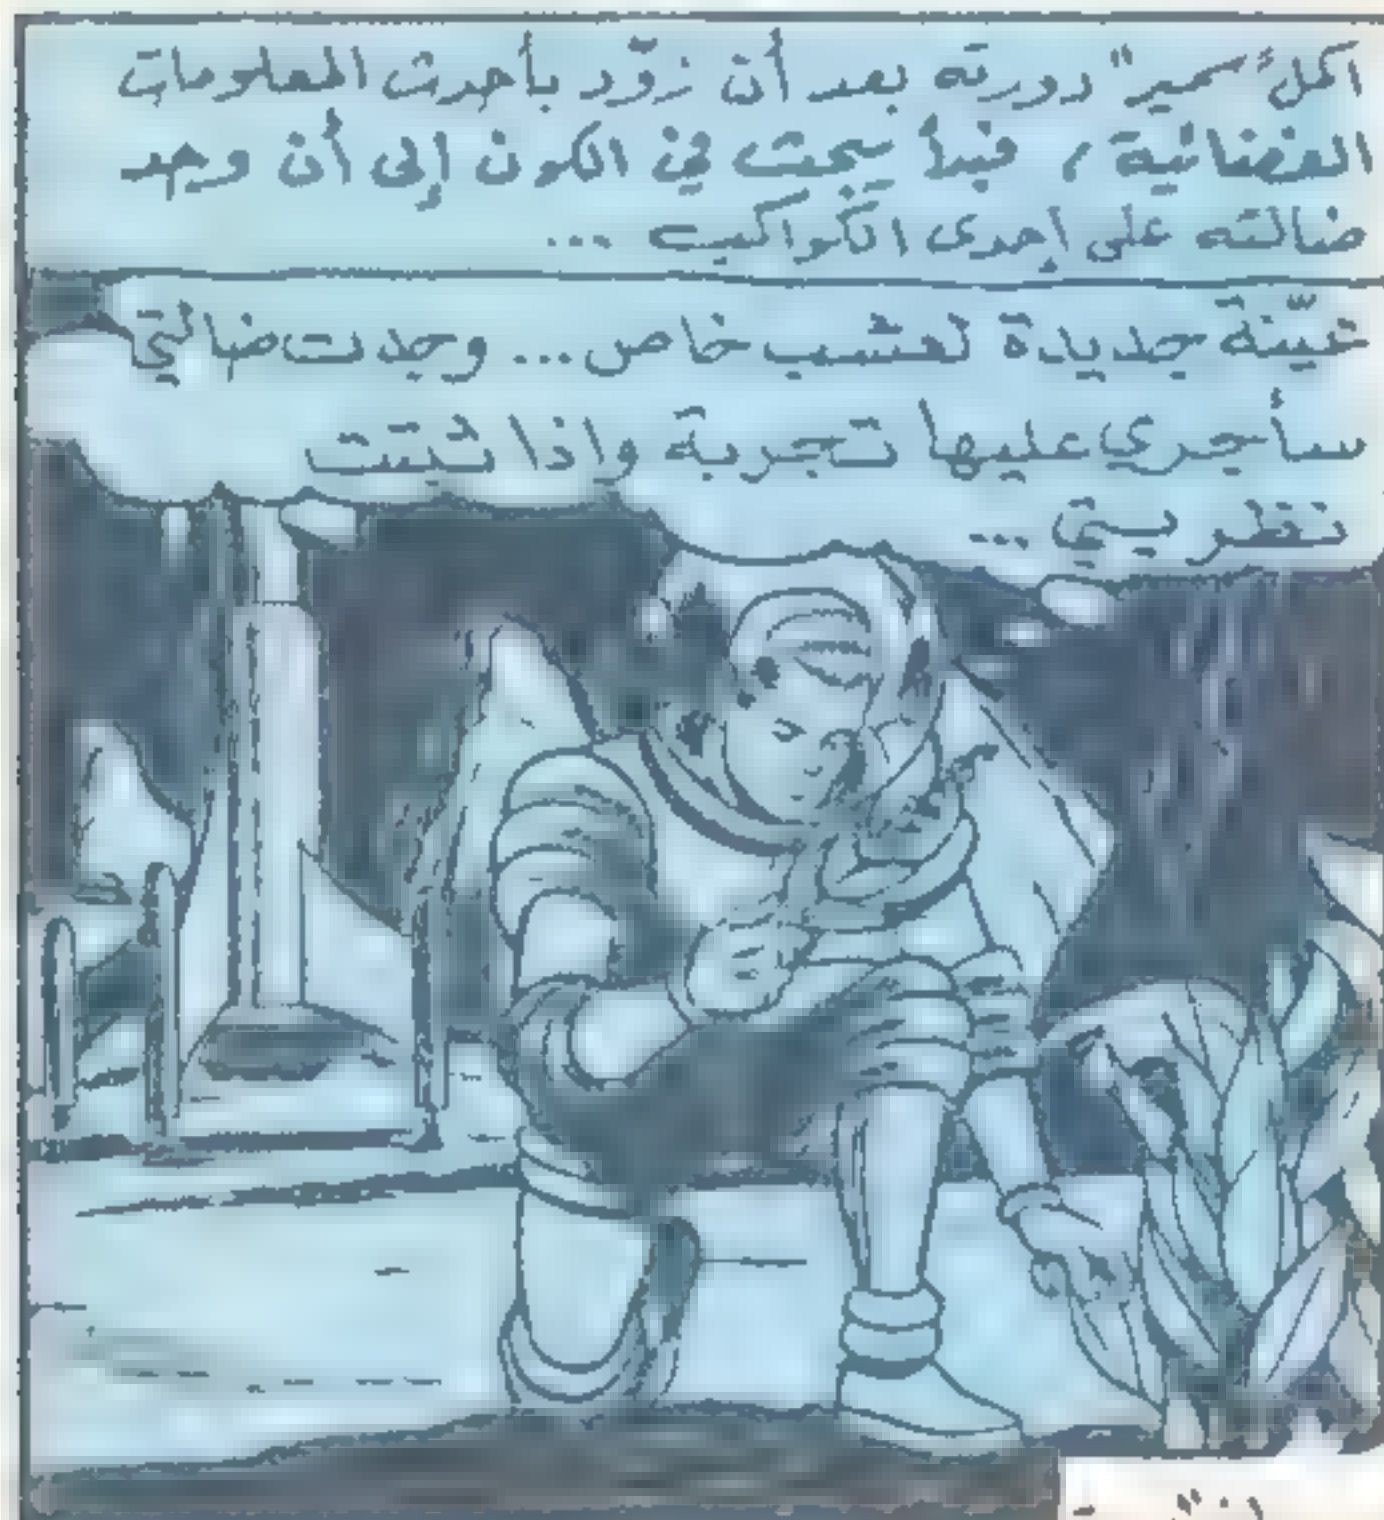 اكمل "سمير" دورته بعد أن زوّد بأحدث المعلومات
الفضائية، فبدأ يبحث في الكون إلى أن وجد
ضالته على إحدى الكواكب ...
عيّنة جديدة لعشب خاص ... وجدت ضالتي
سأجري عليها تجربة واذا ثبتت
نظريتي ...